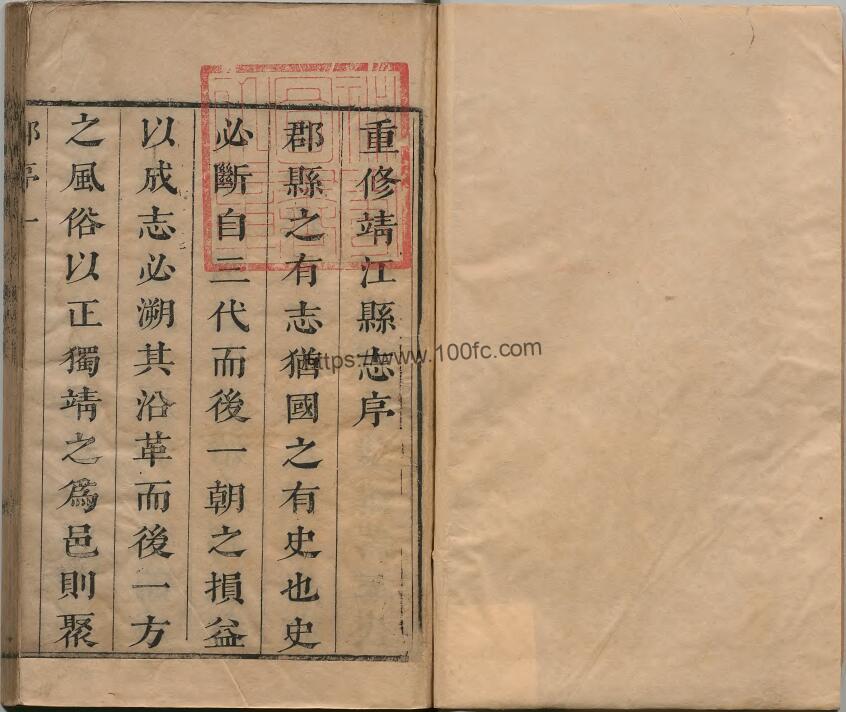 重修靖江縣志序
郡縣之有志猶國之有史也史
必斷自三代而後一朝之損益
以成志必溯其沿革而後一方
之風俗以正獨靖之爲邑則聚
序一
https://www.100fc.com